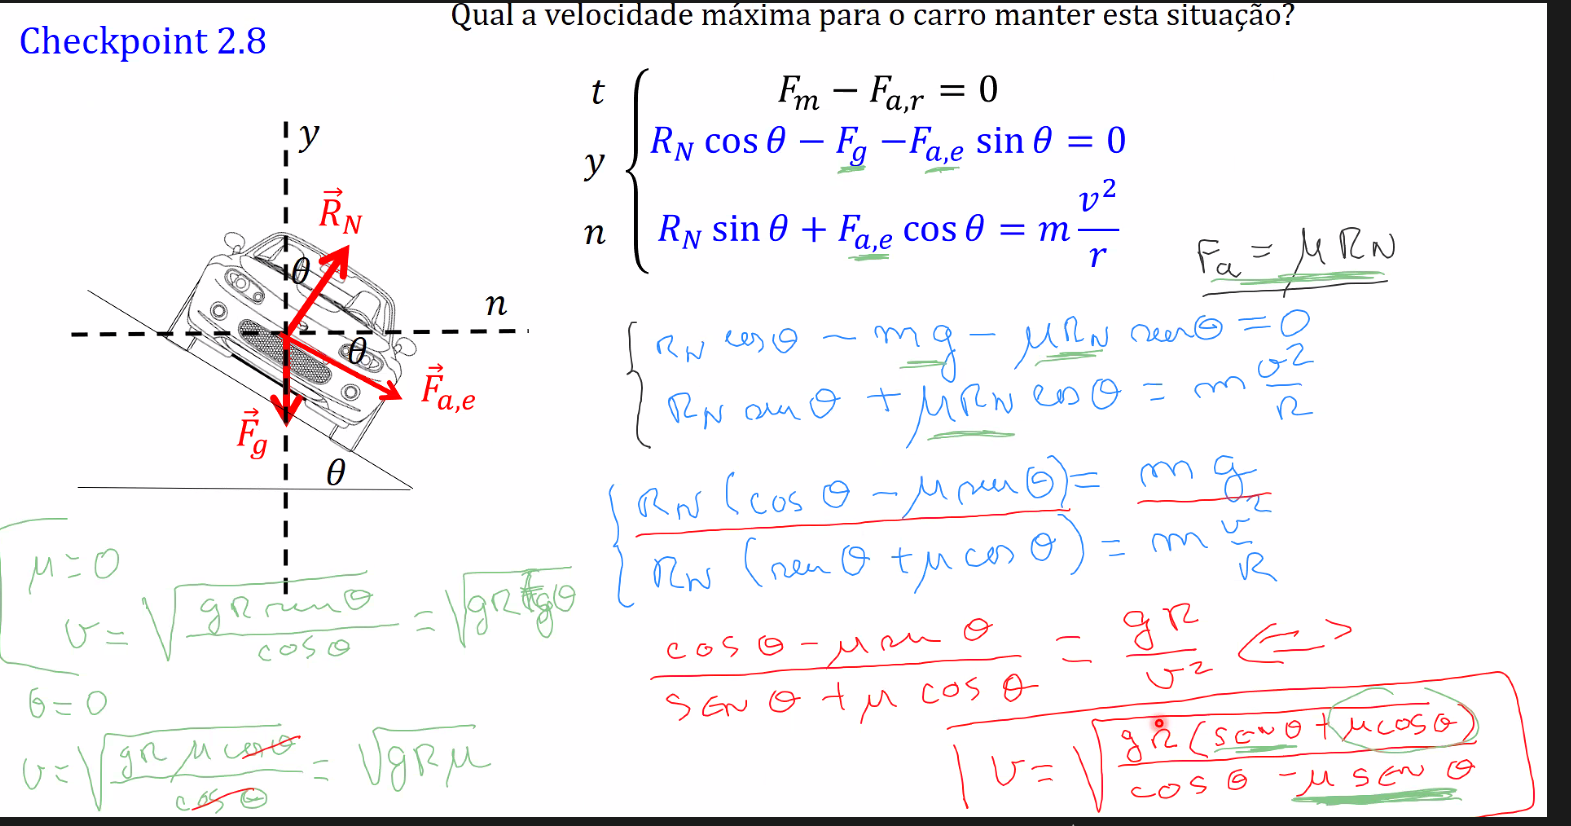 Qual a velocidade máxima para o carro manter esta situação?
Checkpoint 2.8
t F_m − F_{a,r} = 0
y R_N cos θ − F_g − F_{a,e} sin θ = 0
n R_N sin θ + F_{a,e} cos θ = m v²/r
F_a = μ R_N
y
R⃗_N
θ
n
θ
F⃗_{a,e}
F⃗_g
θ
R_N cos θ − m g − μ R_N sen θ = 0
R_N sen θ + μ R_N cos θ = m v²/R
R_N (cos θ − μ sen θ) = m g
R_N (sen θ + μ cos θ) = m v²/R
(cos θ − μ sen θ)/(sen θ + μ cos θ) = gR/v² <=>
v = √(gR (sen θ + μ cos θ)/(cos θ − μ sen θ))
μ = 0
v = √(gR sen θ/cos θ) = √(gR tg θ)
θ = 0
v = √(gR μ cos θ/cos θ) = √(gRμ)